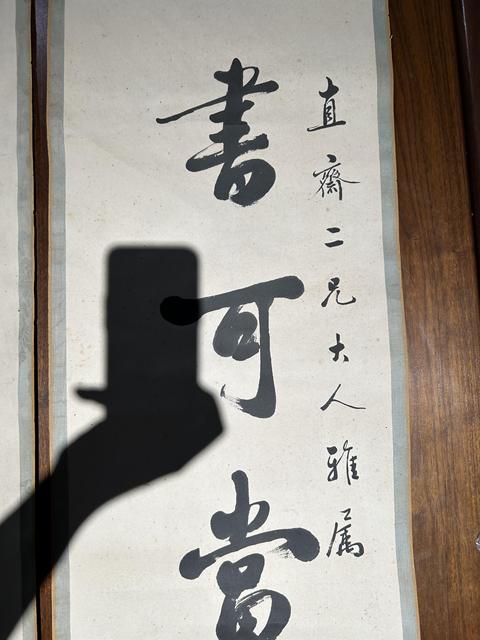 直齋二兄大人雅属
書可當